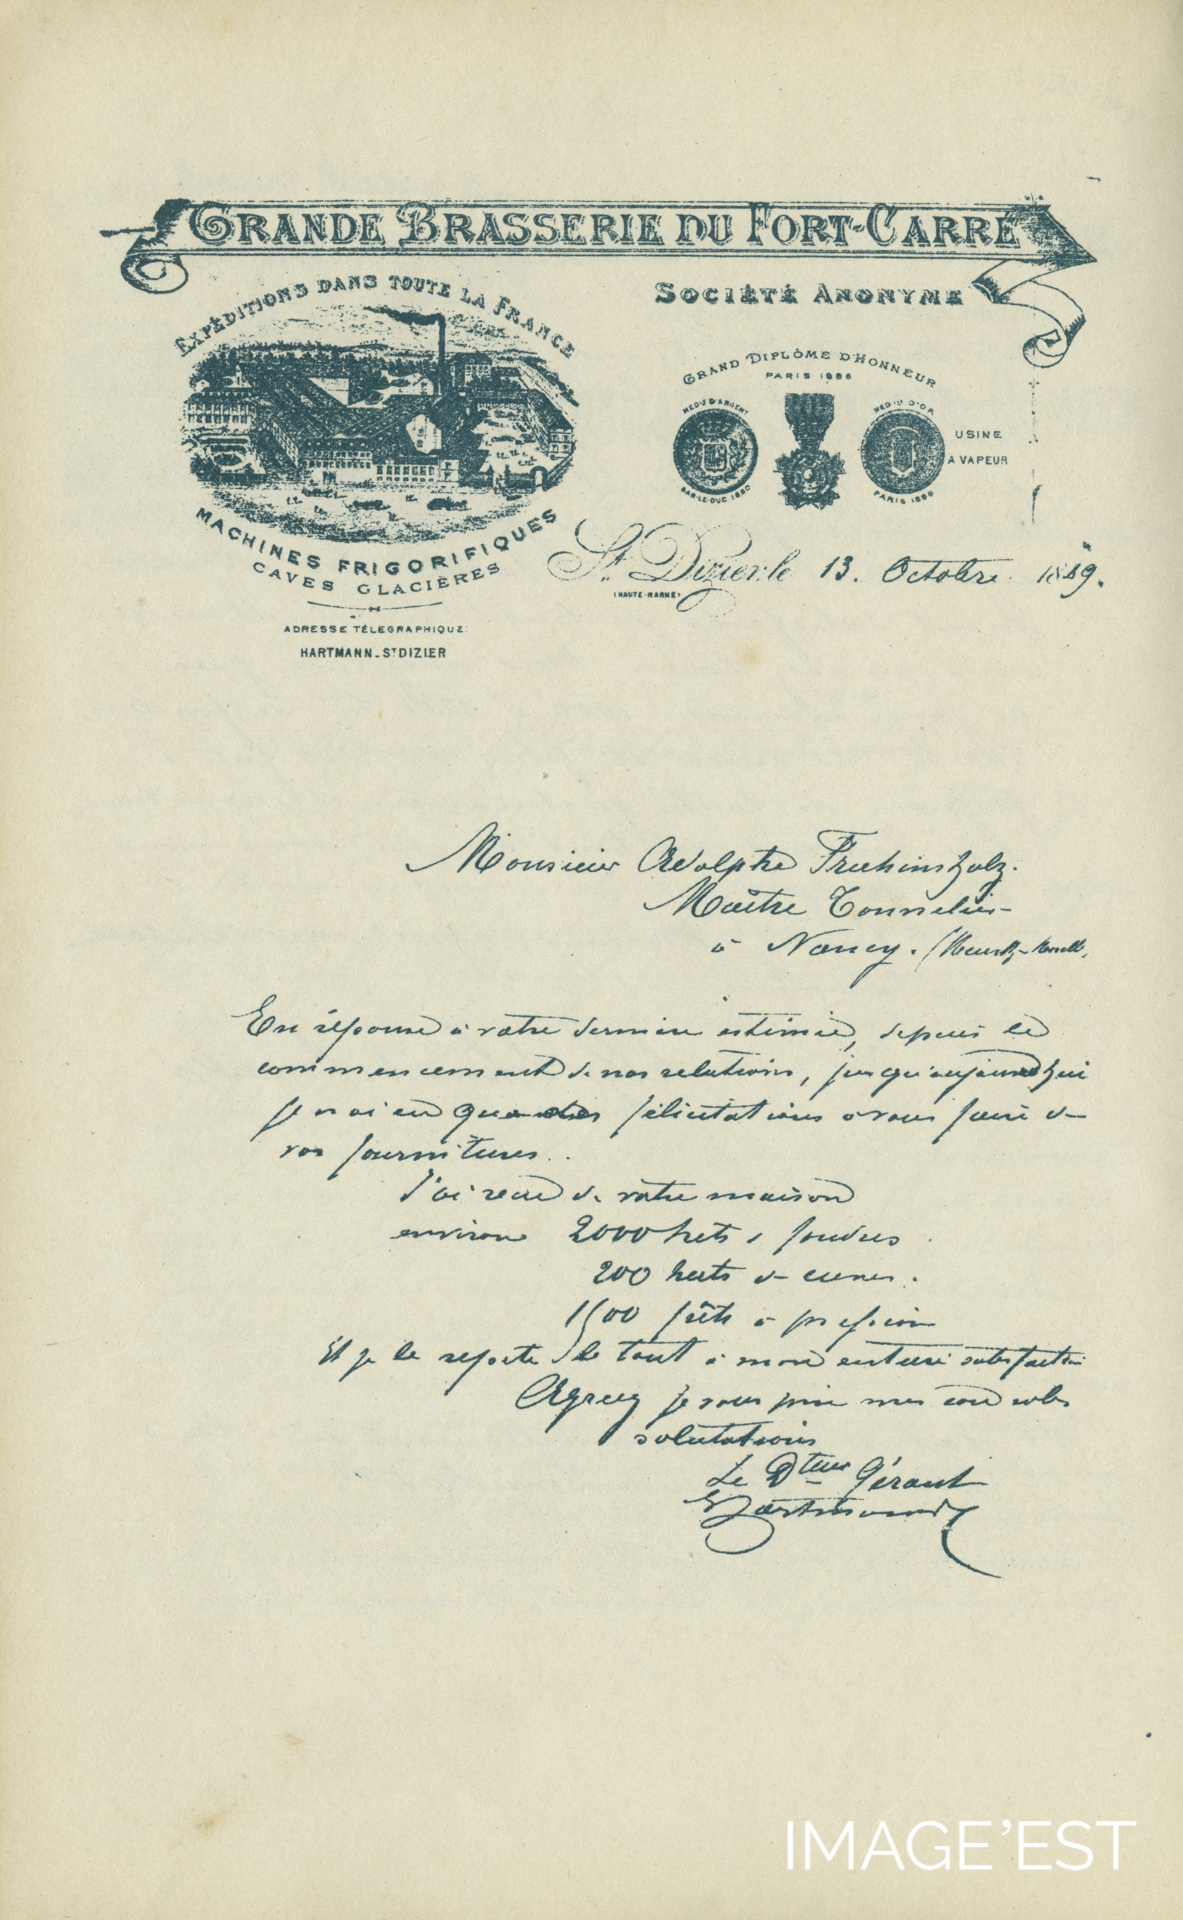 GRANDE BRASSERIE DU FORT-CARRÉ
EXPÉDITIONS DANS TOUTE LA FRANCE
SOCIÉTÉ ANONYME
GRAND DIPLÔME D'HONNEUR
PARIS 1886
MED. D'ARGENT
MED. D'OR
USINE
A VAPEUR
BAR-LE-DUC 1880
PARIS 1886
MACHINES FRIGORIFIQUES
CAVES GLACIÈRES
St. Dizier, le 13. Octobre 1889.
(HAUTE-MARNE)
ADRESSE TÉLÉGRAPHIQUE:
HARTMANN-ST DIZIER
Monsieur Adolphe Fruhinsholz.
Maître Tonnelier
à Nancy. (Meurthe-Moselle.
En réponse à votre dernière estimée, depuis le
commencement de nos relations, jusqu'aujourd'hui
je n'ai eu que des félicitations à vous faire de
vos fournitures.
J'ai reçu de votre maison
environ 2000 hects foudres
200 hects de cuves.
1500 fûts à pression
Et je le reporte le tout à mon entière satisfaction
Agréez je vous prie mes cordiales
salutations
Le Dteur Gérant
Hartmann
IMAGE'EST